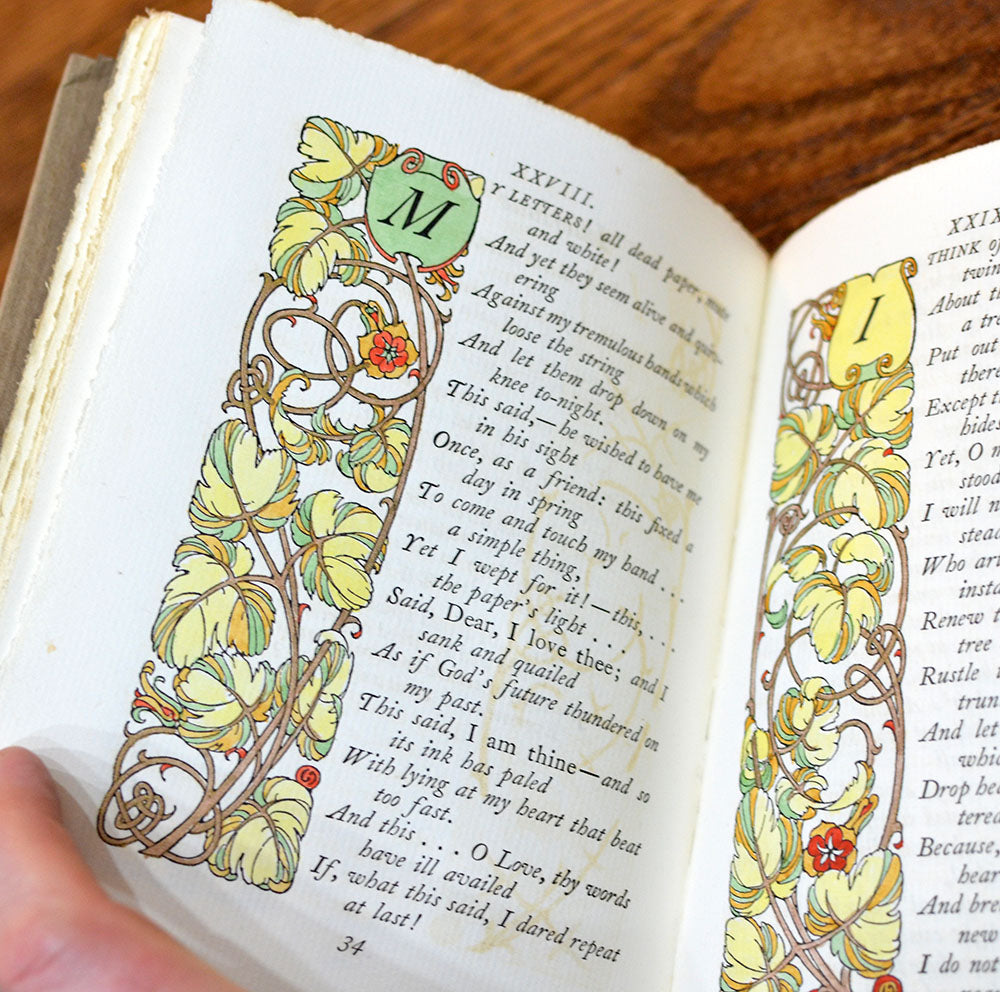 XXVIII.
MY LETTERS! all dead paper, mute
and white!
And yet they seem alive and quiv-
ering
Against my tremulous hands which
loose the string
And let them drop down on my
knee to-night.
This said,—he wished to have me
in his sight
Once, as a friend: this fixed a
day in spring
To come and touch my hand . . .
a simple thing,
Yet I wept for it!—this, . . .
the paper's light . . .
Said, Dear, I love thee; and I
sank and quailed
As if God's future thundered on
my past.
This said, I am thine—and so
its ink has paled
With lying at my heart that beat
too fast.
And this . . . O Love, thy words
have ill availed
If, what this said, I dared repeat
at last!
34
XXIX
I THINK of
twin
About th
a tre
Put out
there
Except th
hides
Yet, O m
stood
I will n
stead
Who art
insta
Renew t
tree
Rustle
trun
And let
whic
Drop hea
tered
Because,
hear
And brea
new
I do not